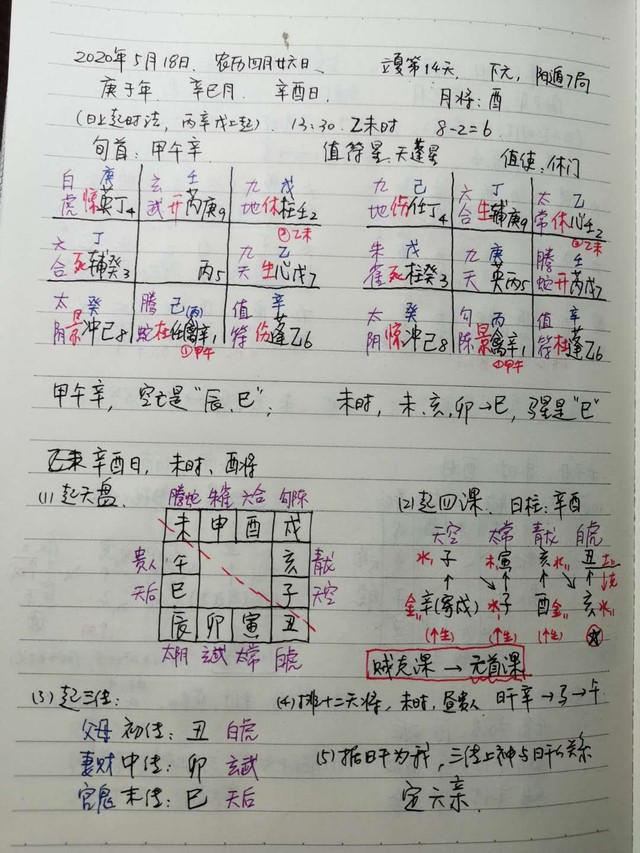 2020年5月18日、农历四月廿六日、 立夏第14天, 下元, 阳遁7局
庚子年 辛巳月、 辛酉日、 月将:酉
(日上起时法,丙辛戊上起)、 13:30、乙未时 8-2=6、
旬首:甲午辛、 值符星、天蓬星 值使:休门
白 庚 玄 壬 九 戊 九 己 六 丁 太 乙
虎 惊英丁4 武 开芮庚9 地 休柱壬2 地 伤任丁4 合 生辅庚9 常 休心壬2
②乙未 ②乙未
六 丁 九 乙 朱 戊 九 庚 腾 壬
合 死辅癸3 丙5 天 生心戊7 雀 死柱癸3 天 英丙5 蛇 开芮戊7
太 癸 腾 己(丙) 值 辛 太 癸 勾 丙 值 辛
阴 景冲己8 蛇 杜任 辛1 符 伤蓬乙6 阴 惊冲己8 陈 景 辛1 符 杜蓬乙6
①甲午 ①甲午
甲午辛, 空亡是“辰、巳”; 未时,未、亥、卯→巳,马星是“巳”
乙未 辛酉日, 未时、酉将
(1)起天盘、 腾蛇 朱雀 六合 勾陈 (2)起四课、 日柱:辛酉
未 申 酉 戌 天空 太常 青龙 白虎
贵人 午 亥 青龙 水 子 木寅 亥水 丑土
天后 巳 子 天空 克
辰 卯 寅 丑 金辛(寄戌) 水子 酉金 亥水
太阴 玄武 太常 白虎 (↑生) (↑生) (↑生)
贼克课 → 元首课
(3)起三传: (4)排十二天将,未时,昼贵人 日干辛→马→午
父母 初传: 丑 白虎
妻财 中传: 卯 玄武 (5)据日干为我,三传上神与日干的关系
官鬼 末传: 巳 天后 定六亲、